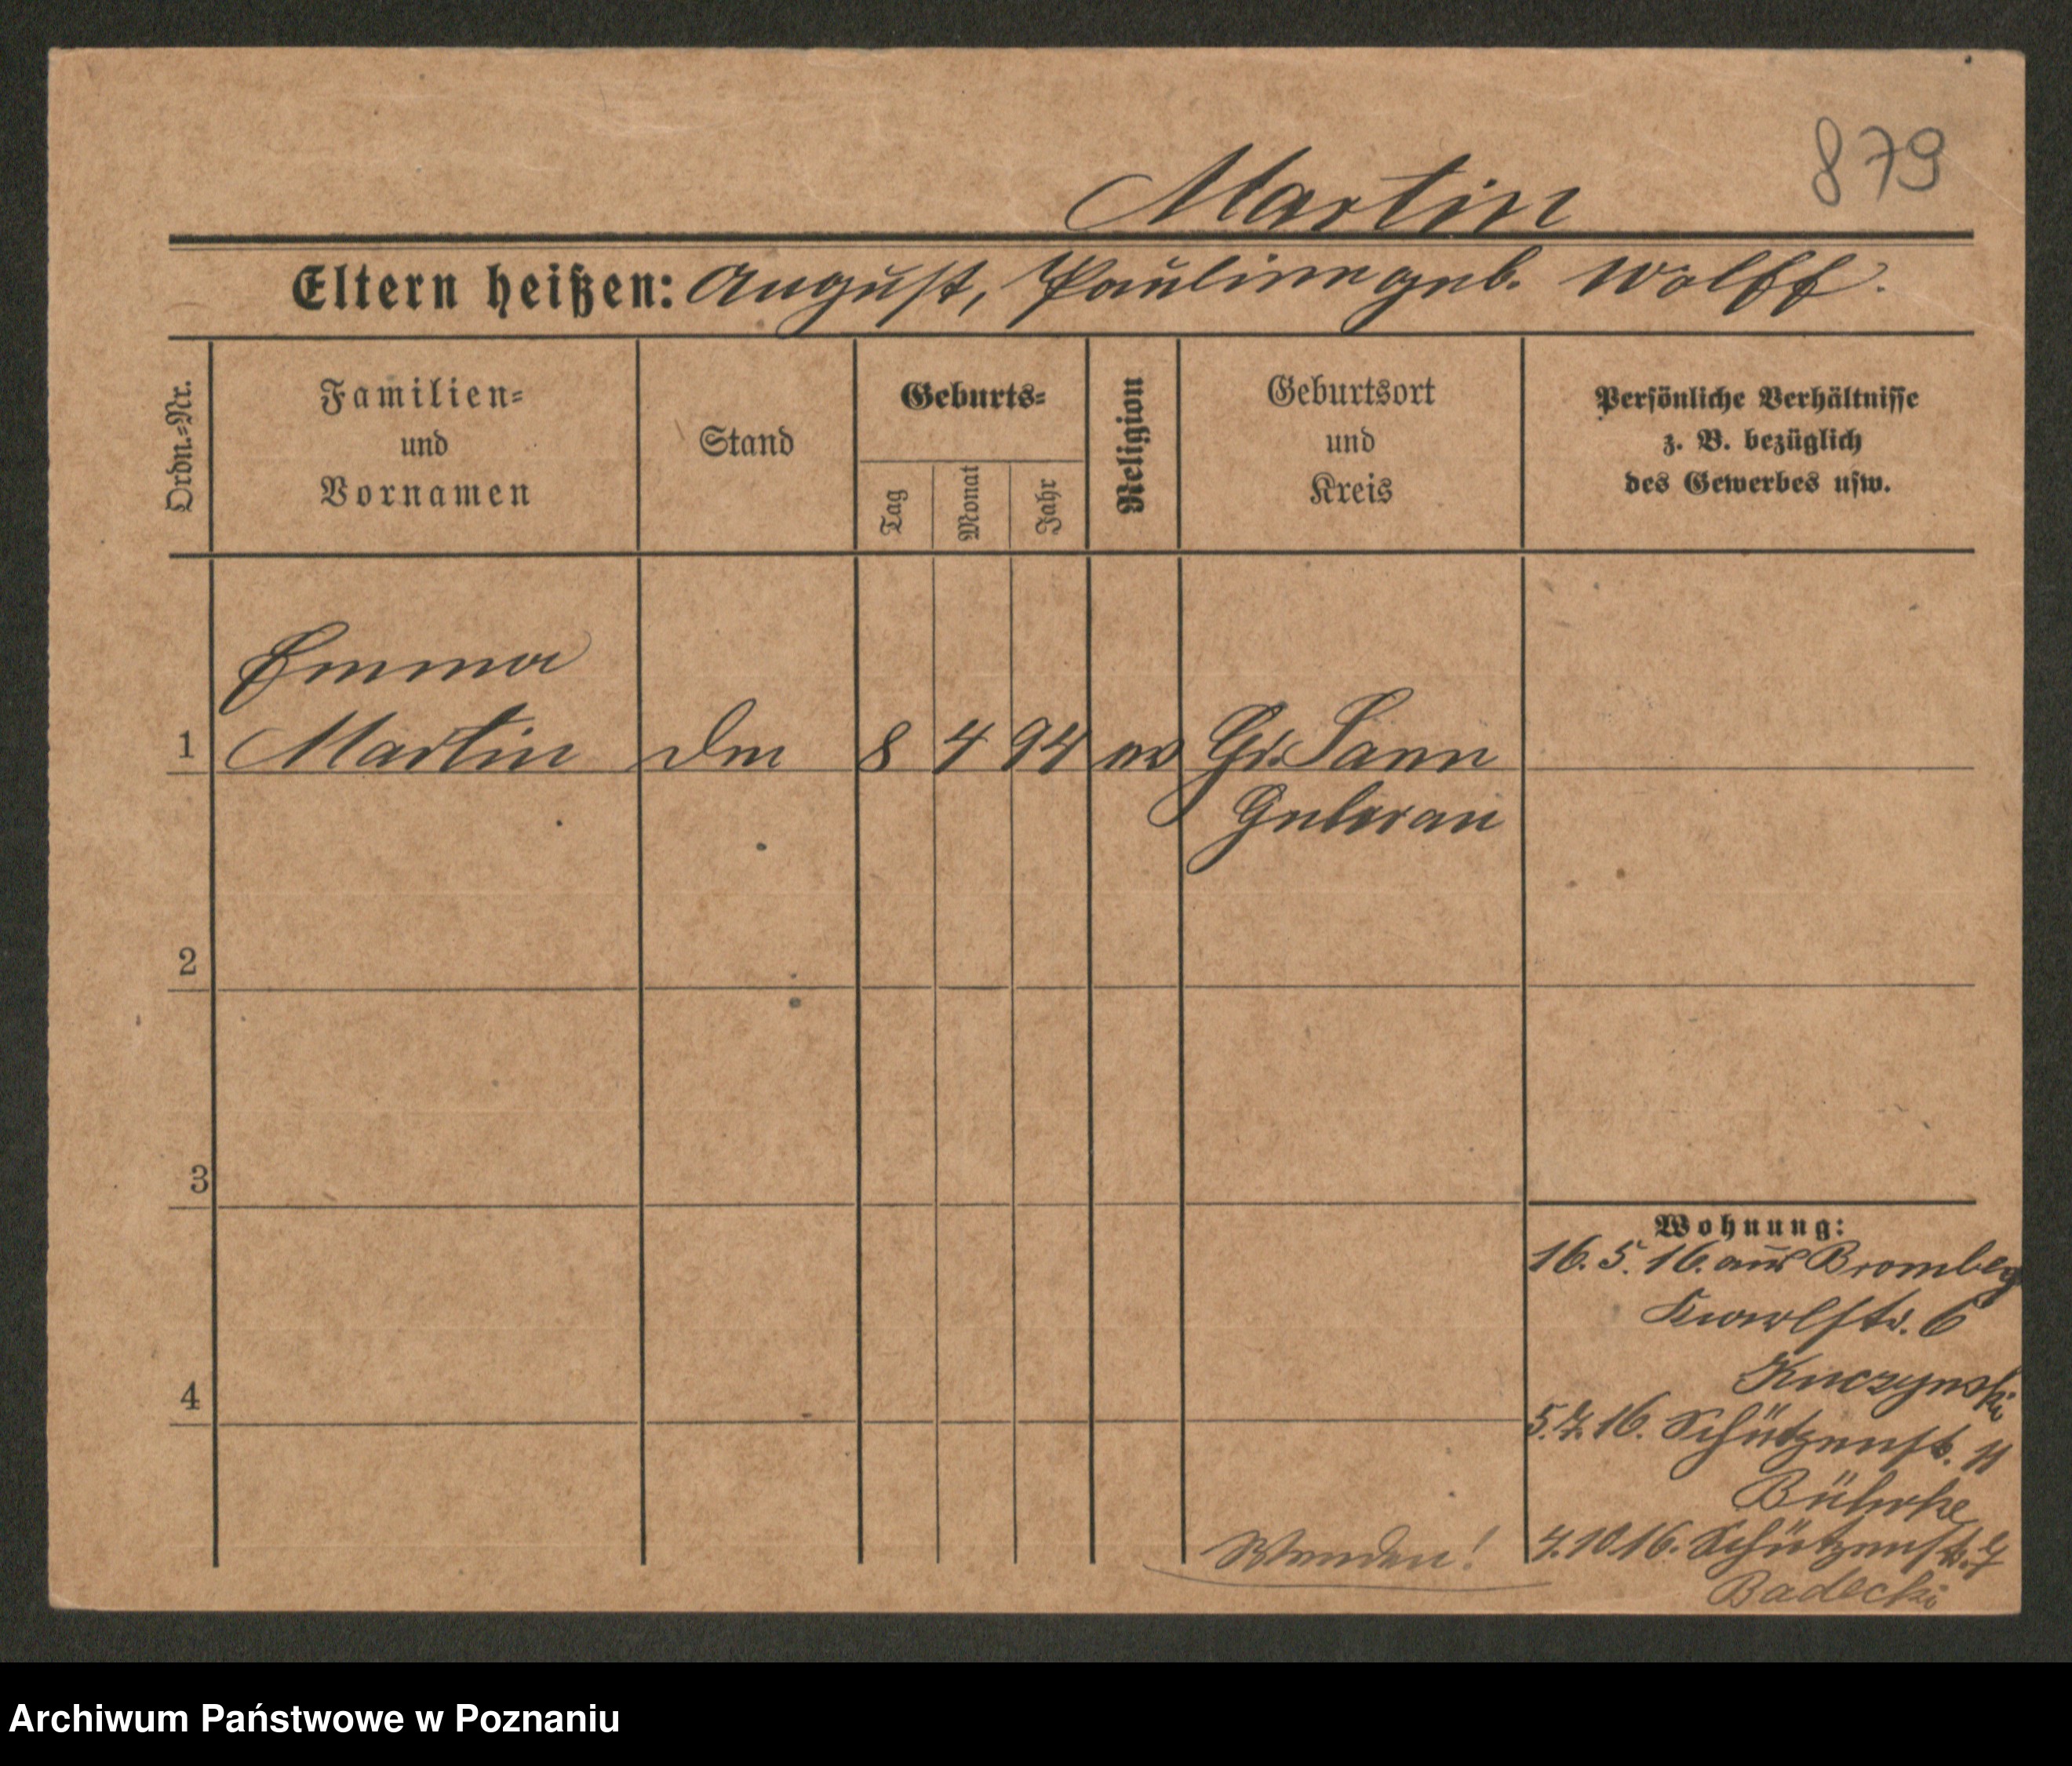 879
Martin
Eltern heißen: August, Pauline geb. Wolff.
Ordn.=Nr.
Familien=
und
Vornamen
Stand
Geburts=
Tag
Monat
Jahr
Religion
Geburtsort
und
Kreis
Persönliche Verhältnisse
z. B. bezüglich
des Gewerbes usw.
Emma
1 Martin 8 4 94 ev Gr. Saun
Guhrau
2
3
4
Wohnung:
16. 5. 16. aus Bromberg
6
Kuczynski
5. 7. 16. Schützenstr. 11
Bührke
4. 10 16. Schützenstr. 7
Badecki
Wenden!
Archiwum Państwowe w Poznaniu